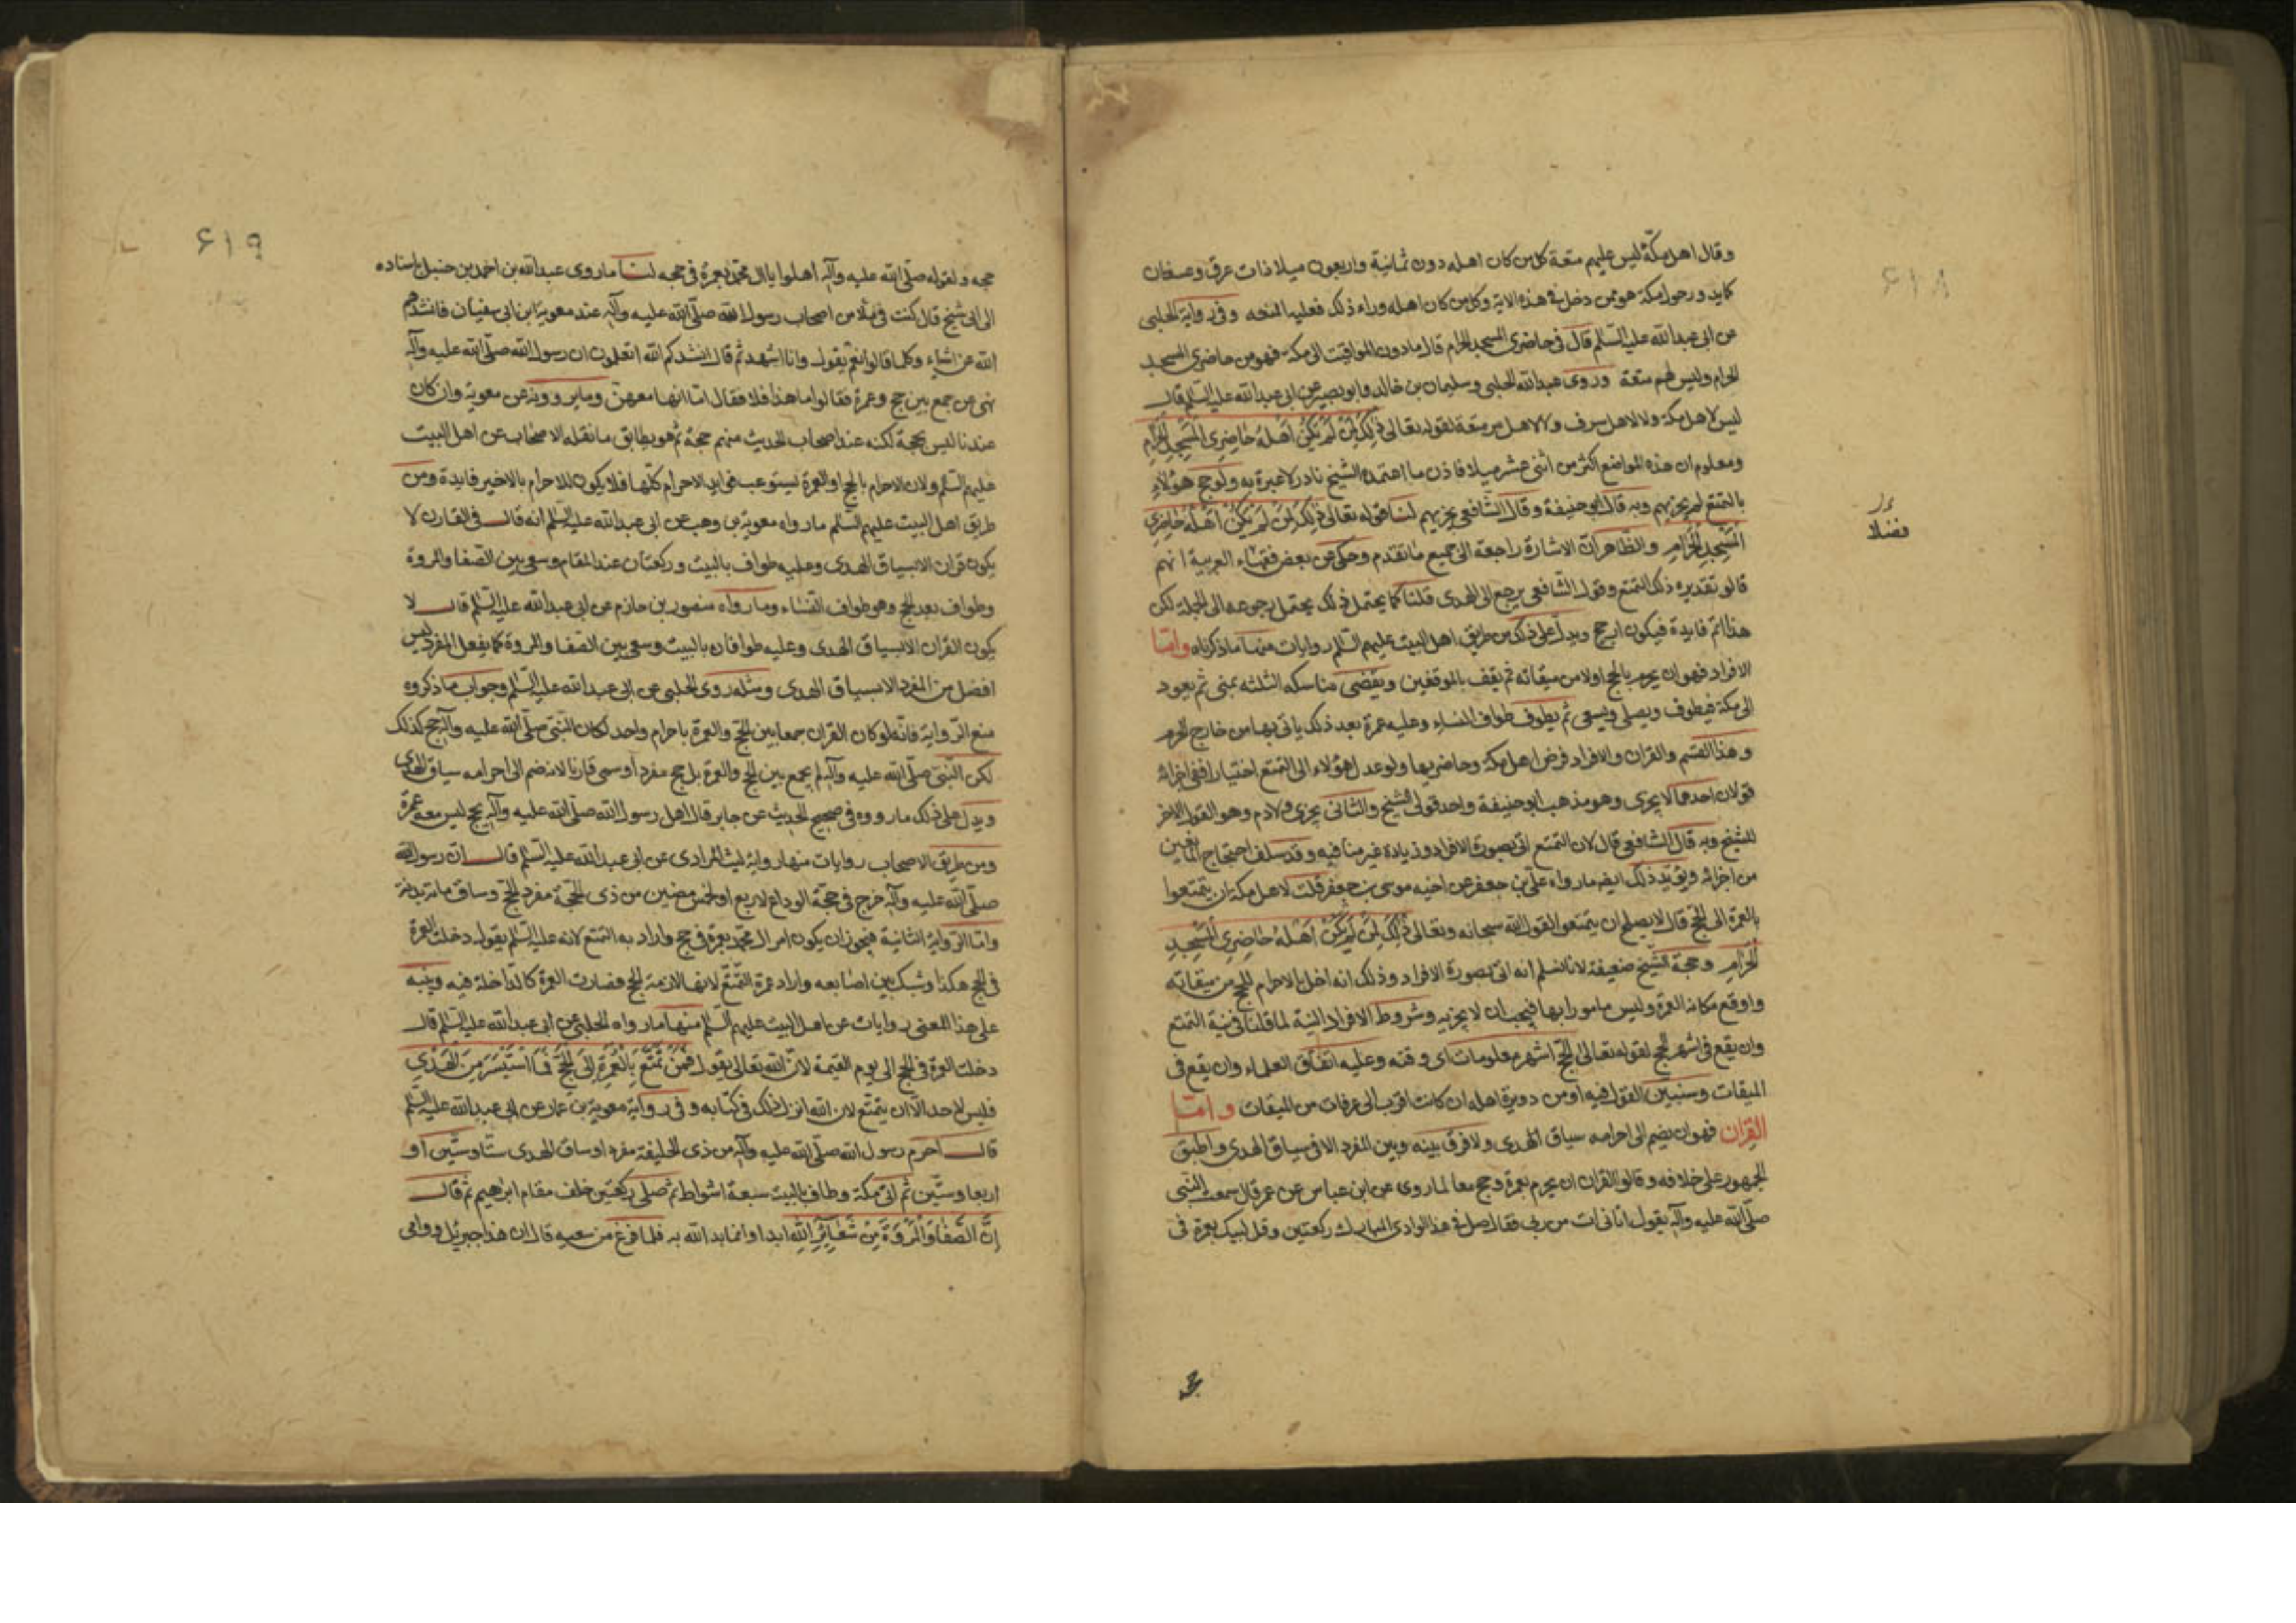 ۶۱۸
وقال اهل مكّة ليس عليهم متعة كل من كان اهله دون ثمانية واربعون ميلا ذات عرق وعسفان
كما يدور حول مكة هو ممن دخل في هذه الاية وكل من كان اهله وراء ذلك فعليه المتعه وفي رواية الحلبي
عن ابي عبدالله عليه السّلم قال في حاضري المسجد الحرام قال مادون المواقيت الى مكة فهو من حاضري المسجد
الحرام وليس لهم متعة وروى عبدالله الحلبي وسليمان بن خالد وابو بصير عن ابي عبدالله عليه السّلم قال
ليس لاهل مكة ولا لاهل سرف ولا لاهل مر متعة لقوله تعالى ذٰلِكَ لِمَنْ لَمْ يَكُنْ اَهْلُهُ حَاضِرِى المَسْجِدِ الحَرَامِ
ومعلوم ان هذه المواضع اكثر من اثنى عشر ميلا فاذن ما اعتمده الشيخ نادر لا عبرة به ولو حج هؤلاء
بالتمتع لم يجزيهم وبه قال ابو حنيفة وقال الشافعي يجزيهم لنا قوله تعالى ذٰلِكَ لِمَنْ لَمْ يَكُنْ اَهْلُهُ حَاضِرِى
المَسْجِدِ الْحَرَامِ والظاهر ان الاشارة راجعة الى جميع ما تقدم وحكى عن بعض فقهاء العربية انهم
قالو تقديره ذلك التمتع وقول الشافعي يرجع الى الهدى قلنا كما يحتمل ذلك يحتمل رجوعه الى الجملة لكن
هذا اتم فايدة فيكون ارجح ويدلّ على ذلك من طريق اهل البيت عليهم السّلم روايات منها ما ذكرناه وامّا
الافراد فهو ان يحرم بالحج اولا من ميقاته ثم يقف بالموقفين ويقضى مناسكه الثلثه بمنى ثم يعود
الى مكة فيطوف ويصلى ويسعى ثم يطوف طواف النساء وعليه عمرة بعد ذلك ياتى بها من خارج الحرم
وهذا القسم والقران والافراد فرض اهل مكة وحاضريها ولو عدل هؤلاء الى التمتع اختيارا ففي اجزائه
قولان احدهما لا يجزى وهو مذهب ابو حنيفة واحد قولى الشيخ والثانى يجزى ولا دم وهو القول الاخر
للشيخ وبه قال الشافعى قال لان التمتع اتى بصورة الافراد وزيادة غير منافيه وقد سلف احتجاج المانعين
من اجزائه ويؤيّد ذلك ايضا مارواه على بن جعفر عن اخيه موسى بن جعفر قلت لاهل مكة ان يتمتعوا
بالعمرة الى الحجّ قال لا يصلح ان يتمتعوا لقول الله سبحانه وتعالى ذٰلِكَ لِمَنْ لَمْ يَكُنْ اَهْلُهُ حَاضِرِى المَسْجِدِ
الْحَرَامِ وحجة الشيخ ضعيفة لانا لانسلم انه اتى بصورة الافراد وذلك انه اخل بالاحرام للحج من ميقاته
واوقع مكانه العمرة وليس مامورا بها فيجب ان لا يجزيه وشروط الافراد النية لما قلنا في نية التمتع
وان يقع فى اشهر الحج لقوله تعالى الحَجّ اَشهر معلومات اى وقته وعليه اتفاق العلماء وان يقع فى
الميقات وسنبيّن القول فيه او من دويرة اهله ان كانت اقرب الى عرفات من الميقات وامّا
القران فهو ان يضم الى احرامه سياق الهدى ولا فرق بينه وبين المفرد الا فى سياق الهدى واطبق
الجمهور على خلافه وقالو القران ان يحرم بعمرة وحج معا لما روى عن ابن عباس عن عمر قال سمعت النبى
صلّى الله عليه وآله يقول اتانى ات من ربى فقال صل فى هذا الوادى المبارك ركعتين وقل لبيك بعمرة فى
فضلا
۶۱۹
حجه ولقوله صلّى الله عليه وآله اهلوا يا ال محمّد بعمرة في حجه لنا ما روى عبدالله بن احمد بن حنبل باسناده
الى ابى شيخ قال كنت فى ملاء من اصحاب رسول الله صلّى الله عليه وآله عند معوية ابن ابى سفيان فانشدهم
الله عن اشياء وكلما قالوا نعم يقول وانا اشهد ثم قال انشدكم الله اتعلمون ان رسول الله صلّى الله عليه وآله
نهى عن جمع بين حج وعمرة فقالوا اما هذا فلا فقال امّا انها معهن ومايروونه عن معوية وان كان
عندنا ليس بحجة لكنه عند اصحاب الحديث منهم حجة ثم هو يطابق ما نقله الاصحاب عن اهل البيت
عليهم السّلم ولان الاحرام بالحج او العمرة يستوعب فوايد الاحرام كلّها فلا يكون للاحرام بالاخير فايدة ومن
طريق اهل البيت عليهم السّلم مارواه معوية بن وهب عن ابى عبدالله عليه السلم انه قال في القارن لا
يكون قران الا بسياق الهدى وعليه طواف بالبيت وركعتان عند المقام وسعى بين الصفا والمروة
وطواف بعد الحج وهو طواف النساء وما رواه منصور بن حازم عن ابى عبدالله عليه السّلم قال لا
يكون القران الا بسياق الهدى وعليه طوافان بالبيت وسعى بين الصفا والمروة كما يفعل المفرد ليس
افضل من المفرد الا بسياق الهدى ومثله روى الحلبى عن ابى عبدالله عليه السّلم وجواب ما ذكروه
منع الرّواية فانّه لو كان القران جمعا بين الحجّ والعمرة باحرام واحد لكان النّبى صلّى الله عليه وآله حج كذلك
لكن النّبىّ صلّى الله عليه وآله لم يجمع بين الحج والعمرة بل حج مفردا وسمى قارنا لانه ضم الى احرامه سياق الهدى
ويدل على ذلك مارووه فى صحيح الحديث عن جابر قال اهل رسول الله صلّى الله عليه وآله بحج ليس معه عمرة
ومن طريق الاصحاب روايات منها رواية ليث المرادى عن ابى عبدالله عليه السّلم قال ان رسول الله
صلّى الله عليه وآله خرج فى حجّة الوداع لاربع او لخمس مضين من ذى الحجّة مفرد الحجّ وساق مائة بدنة
وامّا الرّواية الثانية فيجوز ان يكون امر ال محمّد بعمرة فى حج واراد به التمتع لانه عليه السّلم يقول دخلت العمرة
فى الحج هكذا وشبك بين اصابعه واراد عمرة التمّتع لانها لازمة للحج فصارت العمرة كالدّاخلة فيه وينبه
على هذا المعنى روايات عن اهل البيت عليهم السّلم منها ما رواه الحلبى عن ابى عبدالله عليه السّلم قال
دخلت العمرة فى الحج الى يوم القيمة لانّ الله تعالى يقول فَمَنْ تَمَتَّعَ بِالْعُمْرَةِ اِلَى الحَجِّ فَمَا اسْتَيْسَرَ مِنَ الْهَدْىِ
فليس لاحد الّا ان يتمتّع لان الله انزل ذلك في كتابه وفى رواية معوية بن عمار عن ابى عبدالله عليه السّلم
قال احرم رسول الله صلّى الله عليه وآله من ذى الحليفة مفردا وساق الهدى ستّا وستّين او
اربعا وستّين ثم اتى مكة وطاف بالبيت سبعة اشواط ثم صلى ركعتين خلف مقام ابرٰهيم ثم قال
اِنَّ الصَّفَا وَالْمَرْوَةَ مِنْ شَعَائِرِ اللهِ ابداوا بما بدا الله به فلما فرغ من سعيه قال ان هذا جبرئيل واومى